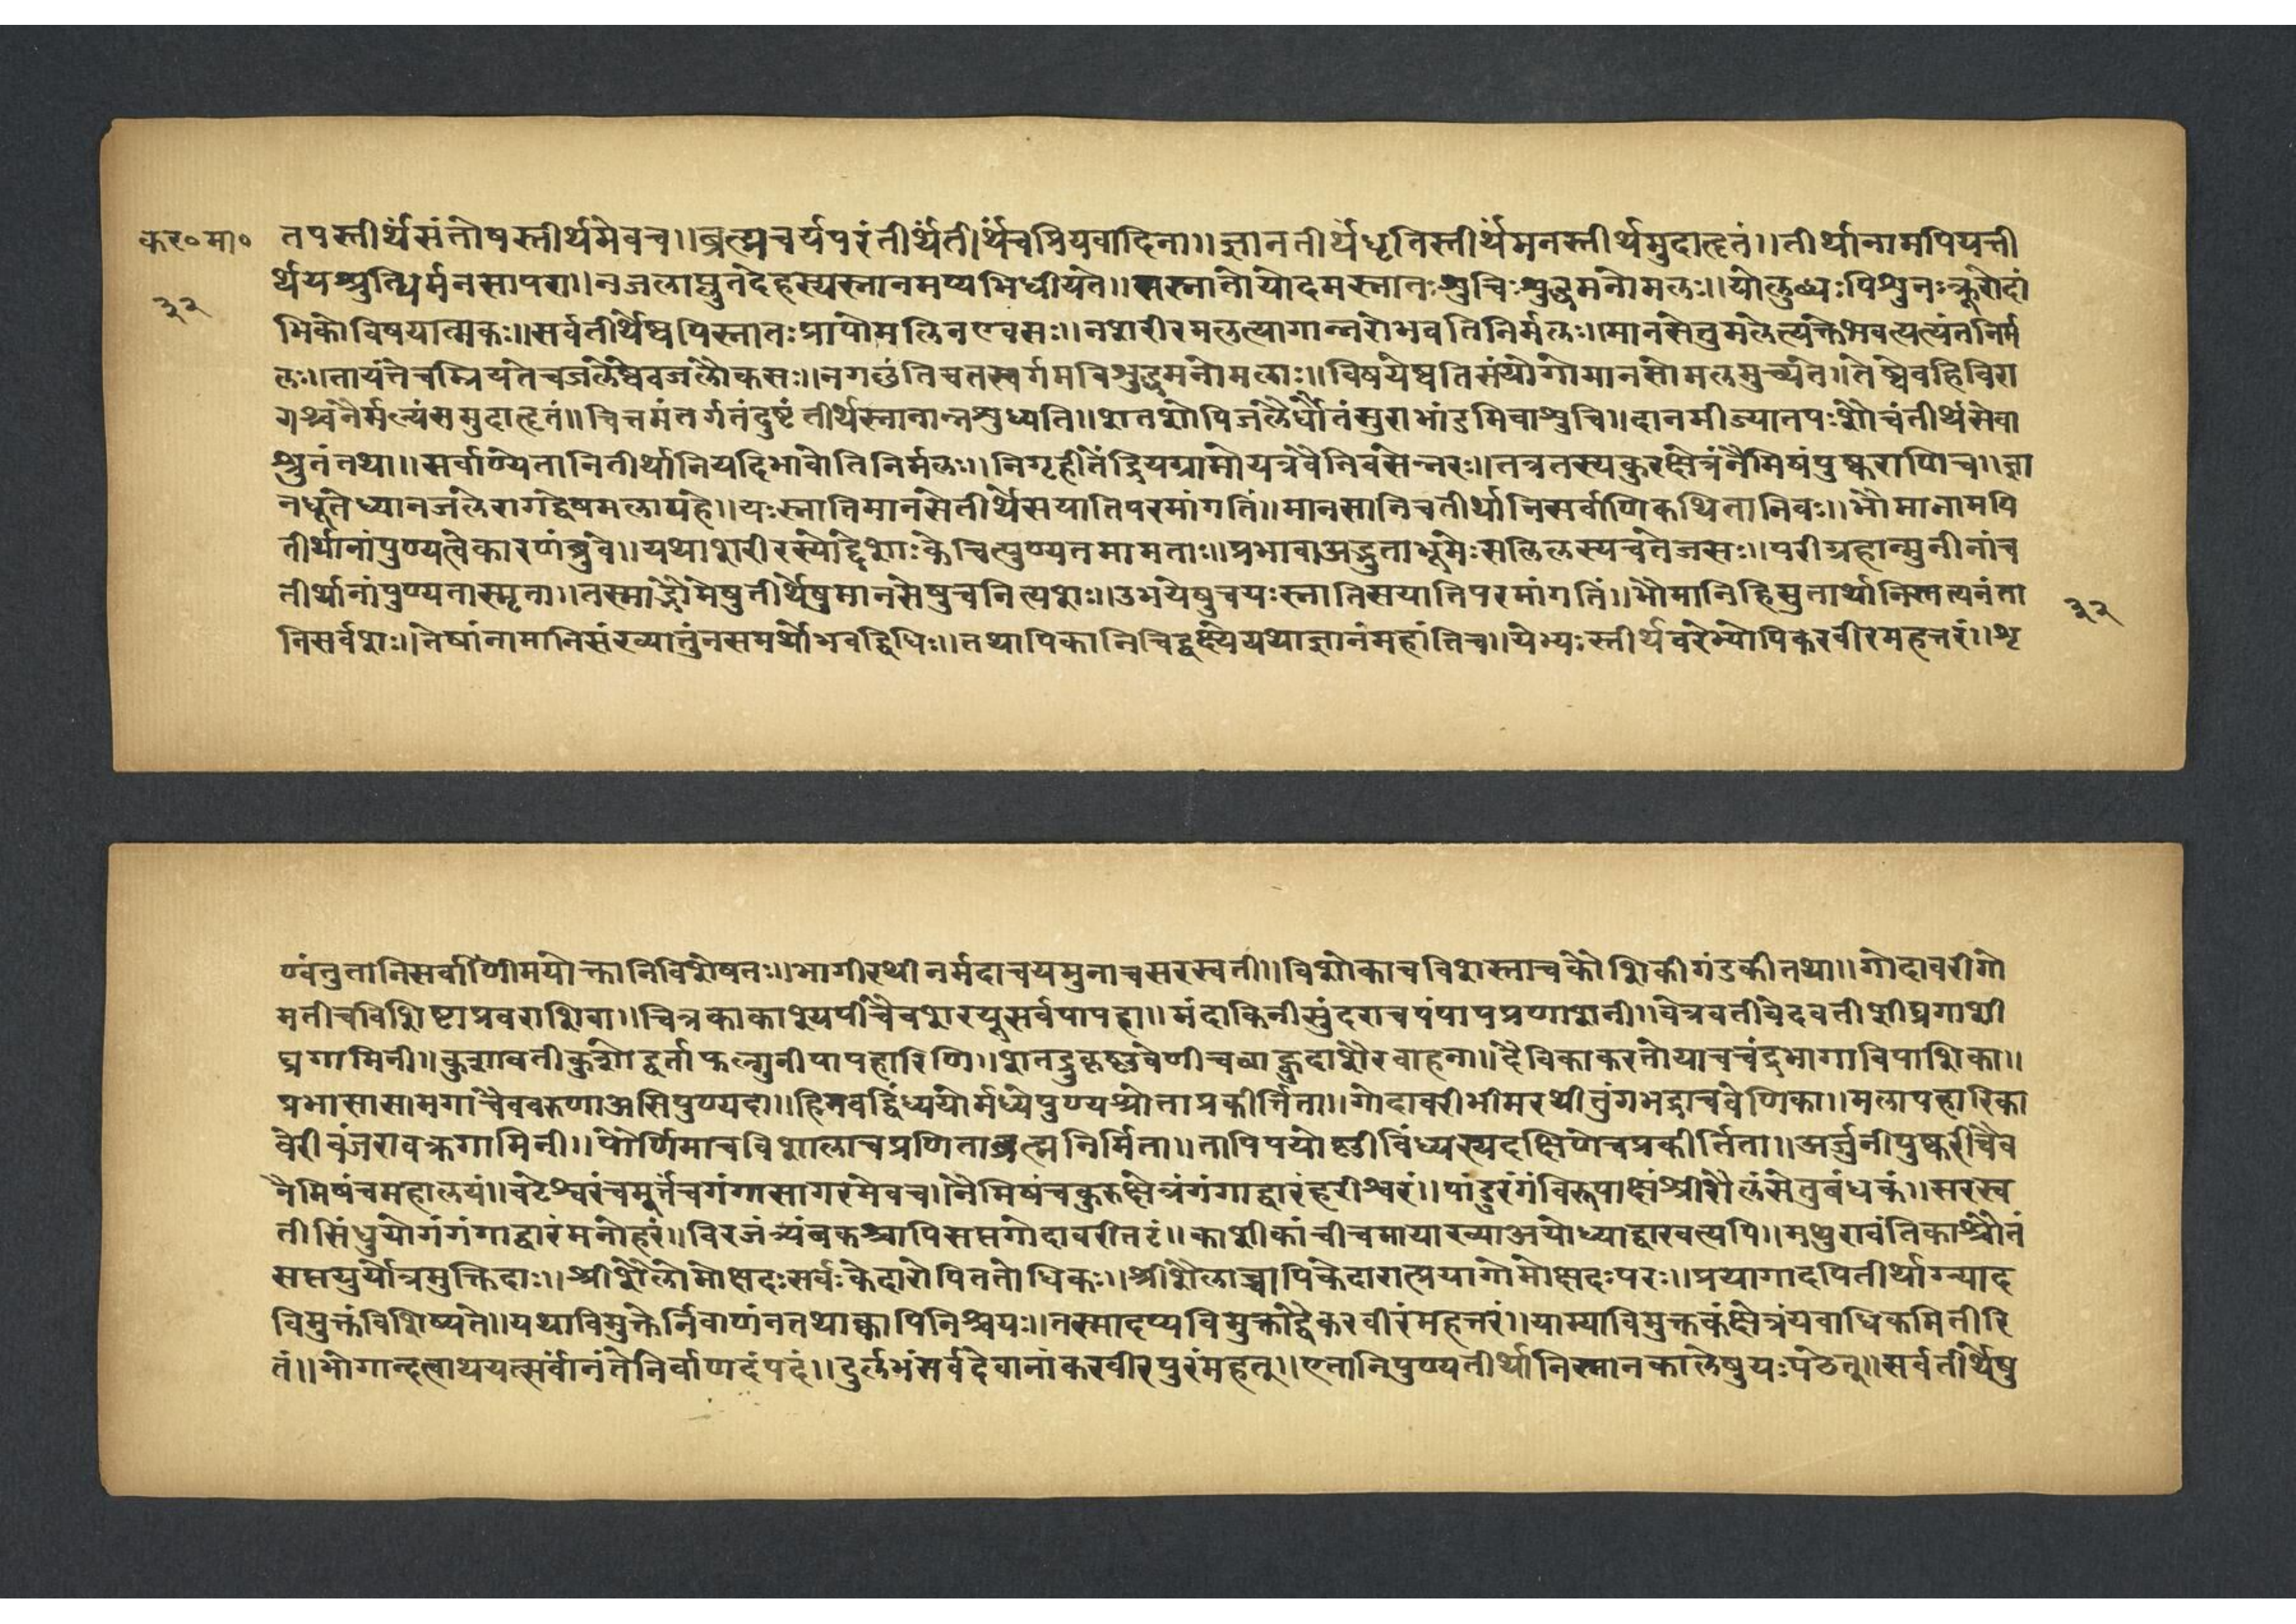 कर०मा०
३२
तपस्तीर्थंसंतोषस्तीर्थमेवच।।ब्रह्मचर्यपरंतीर्थंतीर्थंचप्रियवादिना।।ज्ञानतीर्थंधृतिस्तीर्थंमनस्तीर्थमुदाहृतं।।तीर्थानामपियत्ती
र्थंयश्रुत्धिर्मनसापरा।।नजलाप्लुतदेहस्यस्नानमप्यभिधीयते।।सस्नातोयोदमस्नातःशुचिःशुद्धमनोमलः।।योलुब्धःपिशुनःक्रूरोदां
भिकोविषयात्मकः।।सर्वतीर्थेष्वपिस्नातःप्रापोमलिनएवसः।।नशरीरमलत्यागान्नरोभवतिनिर्मलः।।मानसेतुमलेत्यक्तेभवत्यत्यंतनिर्म
लः।।तायंतेचम्रियंतेचजलेष्वेवजलौकसः।।नगछंतिचतस्वर्गमविशुद्धमनोमलाः।।विषयेष्वतिसंयोगोमानसोमलमुच्यते।।तेष्वेवहिविरा
गश्चनैर्मल्यंसमुदाहृतं॥चित्तमंतर्गतंदुष्टंतीर्थस्नानान्नशुध्यति।।शतशोपिजलैर्धौतंसुराभांडमिवाशुचि॥दानमीज्यातपःशौचंतीर्थसेवा
श्रुतंतथा।।सर्वाण्येतानितीर्थानियदिभावोतिनिर्मलः।।निगृहीतेंद्रियग्रामोयत्रवैनिवसेन्नरः।।तत्रतस्यकुरुक्षेत्रंनैमिषंपुष्कराणिच।।ज्ञा
नधूतेध्यानजलेरागद्वेषमलापहे।।यःस्नातिमानसेतीर्थेसयातिपरमांगतिं।।मानसानिचतीर्थानिसर्वाणिकथितानिवः।।भौमानामपि
तीर्थानांपुण्यत्वेकारणंब्रुवे।।यथाशरीरस्योद्देशाःकेचित्पुण्यतमामताः।।प्रभावाअद्भुताभूमेःसलिलस्यचतेजसः।।परीग्रहान्मुनीनांच
तीर्थानांपुण्यतास्मृता।।तस्माद्भौमेषुतीर्थेषुमानसेषुचनित्यशः।।उभयेषुचयःस्नातिसयातिपरमांगतिं।।भौमानिहिसुतार्थानिस्मत्यनंता
निसर्वशः।।तेषांनामानिसंख्यातुंनसमर्थोभवद्विधिः।।तथापिकानिचिद्वक्ष्येयथाज्ञानंमहांतिच।।येभ्यःस्तीर्थवरेभ्योपिकरवीरमहत्तरं।।शृ
३२
ण्वंतुतानिसर्वाणिमयोक्तानिविशेषतः।।भागीरथीनर्मदाचयमुनाचसरस्वती।।विशोकाचविशस्ताचकौशिकीगंडकीतथा।।गोदावरीगो
मतीचविशिष्टाप्रवराशिवा।।चित्रकाकाश्येयपीचैवशरयूसर्वपापहा॥मंदाकिनीसुंदराचपंपापप्रणाशनी।।वेत्रवतीवेदवतीशीघ्रगाशी
घ्रगामिनी॥कुशावतीकुशोद्वर्ताफल्गुनीपापहारिणि।।शतद्रुकृष्णवेणीचबाहुदाशैरवाहना।।दैविकाकरतोयाचचंद्रभागाविपाशिका॥
प्रभासासामगाचैववरुणाअसिपुण्यदा॥हिमवद्विंध्ययोर्मध्येपुण्यश्योताप्रकीर्त्तिता॥गोदावरीभीमरथीतुंगभद्राचवेणिका॥मलापहारिका
वेरीवंजरावक्रगामिनी।।पौर्णिमाचविशालाचप्रणिताब्रह्मनिर्मिता॥तापिपयोष्णीविंध्यस्यदक्षिणेचप्रकीर्तिता॥अर्जुनीपुष्करीचैव
नैमिषंचमहालयं॥वटेश्वरंचमूर्त्तंचगंगासागरमेवच।।नैमिषंचकुरुक्षेत्रंगंगाद्वारंहरीश्वरं।।पांडुरंगंविरूपाक्षंश्रीशैलंसेतुबंधकं॥सरस्व
तीसिंधुयोगंगंगाद्वारंमनोहरं॥विरजंत्र्यंबकश्चापिसप्तगोदावरीतटं॥काशीकांचीचमायाख्याअयोध्याद्वारवत्यपि॥मथुरावंतिकाश्चैतं
सप्तपुर्योत्रमुक्तिदाः।।श्रीशैलोमोक्षदःसर्वःकेदारोपिततोधिकः।।श्रीशैलाच्चापिकेदारात्प्रयागोमोक्षदःपरः।।प्रयागादपितीर्थाग्न्याद
विमुक्तंविशिष्यते॥यथाविमुक्तेर्निवाणंनतथाक्वापिनिश्चयः।।तस्मादप्यविमुक्ताद्वैकरवीरंमहत्तरं।।याम्याविमुक्तकंक्षेत्रंयवाधिकमितीरि
तं॥भोगान्दत्वाथयत्सर्वानंतेनिर्वाणदंपदं।।दुर्लभंसर्वदेवानांकरवीरपुरंमहत्।।एतानिपुण्यतीर्थानिस्नानकालेषुयःपठेत्॥सर्वतीर्थेषु